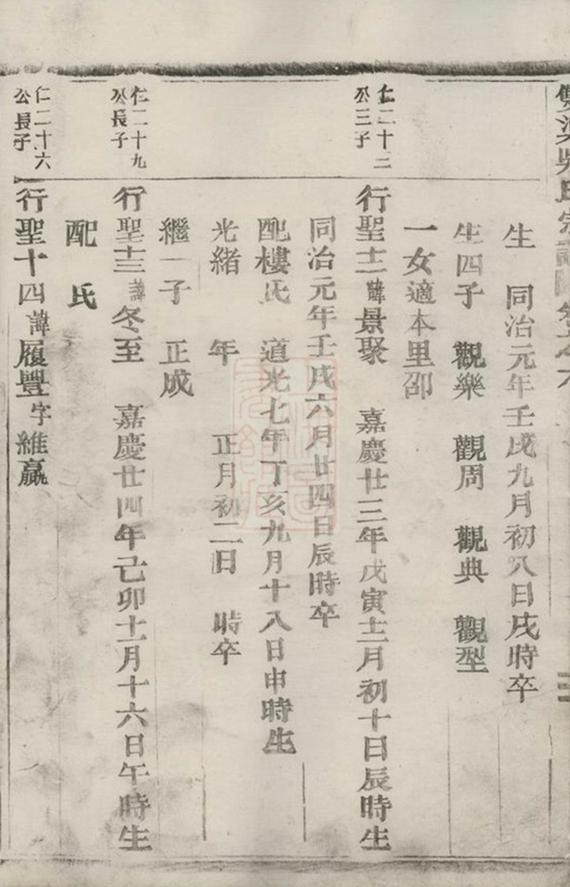 生 同治元年壬戌九月初八日戌時卒
生四子 觀樂 觀周 觀典 觀型
一女適本里邵
仁二十三
公三子
行聖十二諱景聚 嘉慶廿三年戊寅十二月初十日辰時生
同治元年壬戌六月廿四日辰時卒
配樓氏 道光七年丁亥九月十八日申時生
光緒 年 正月初二日 時卒
繼一子 正成
仁二十九
公長子
行聖十三諱冬至 嘉慶廿四年己卯十二月十六日午時生
配 氏
仁二十六
公長子
行聖十四諱履豐字維贏